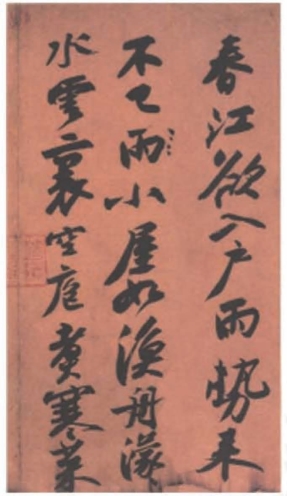 春江欲入户雨勢来
不已雨小屋如漁舟濛
水雲裏空庖煮寒菜